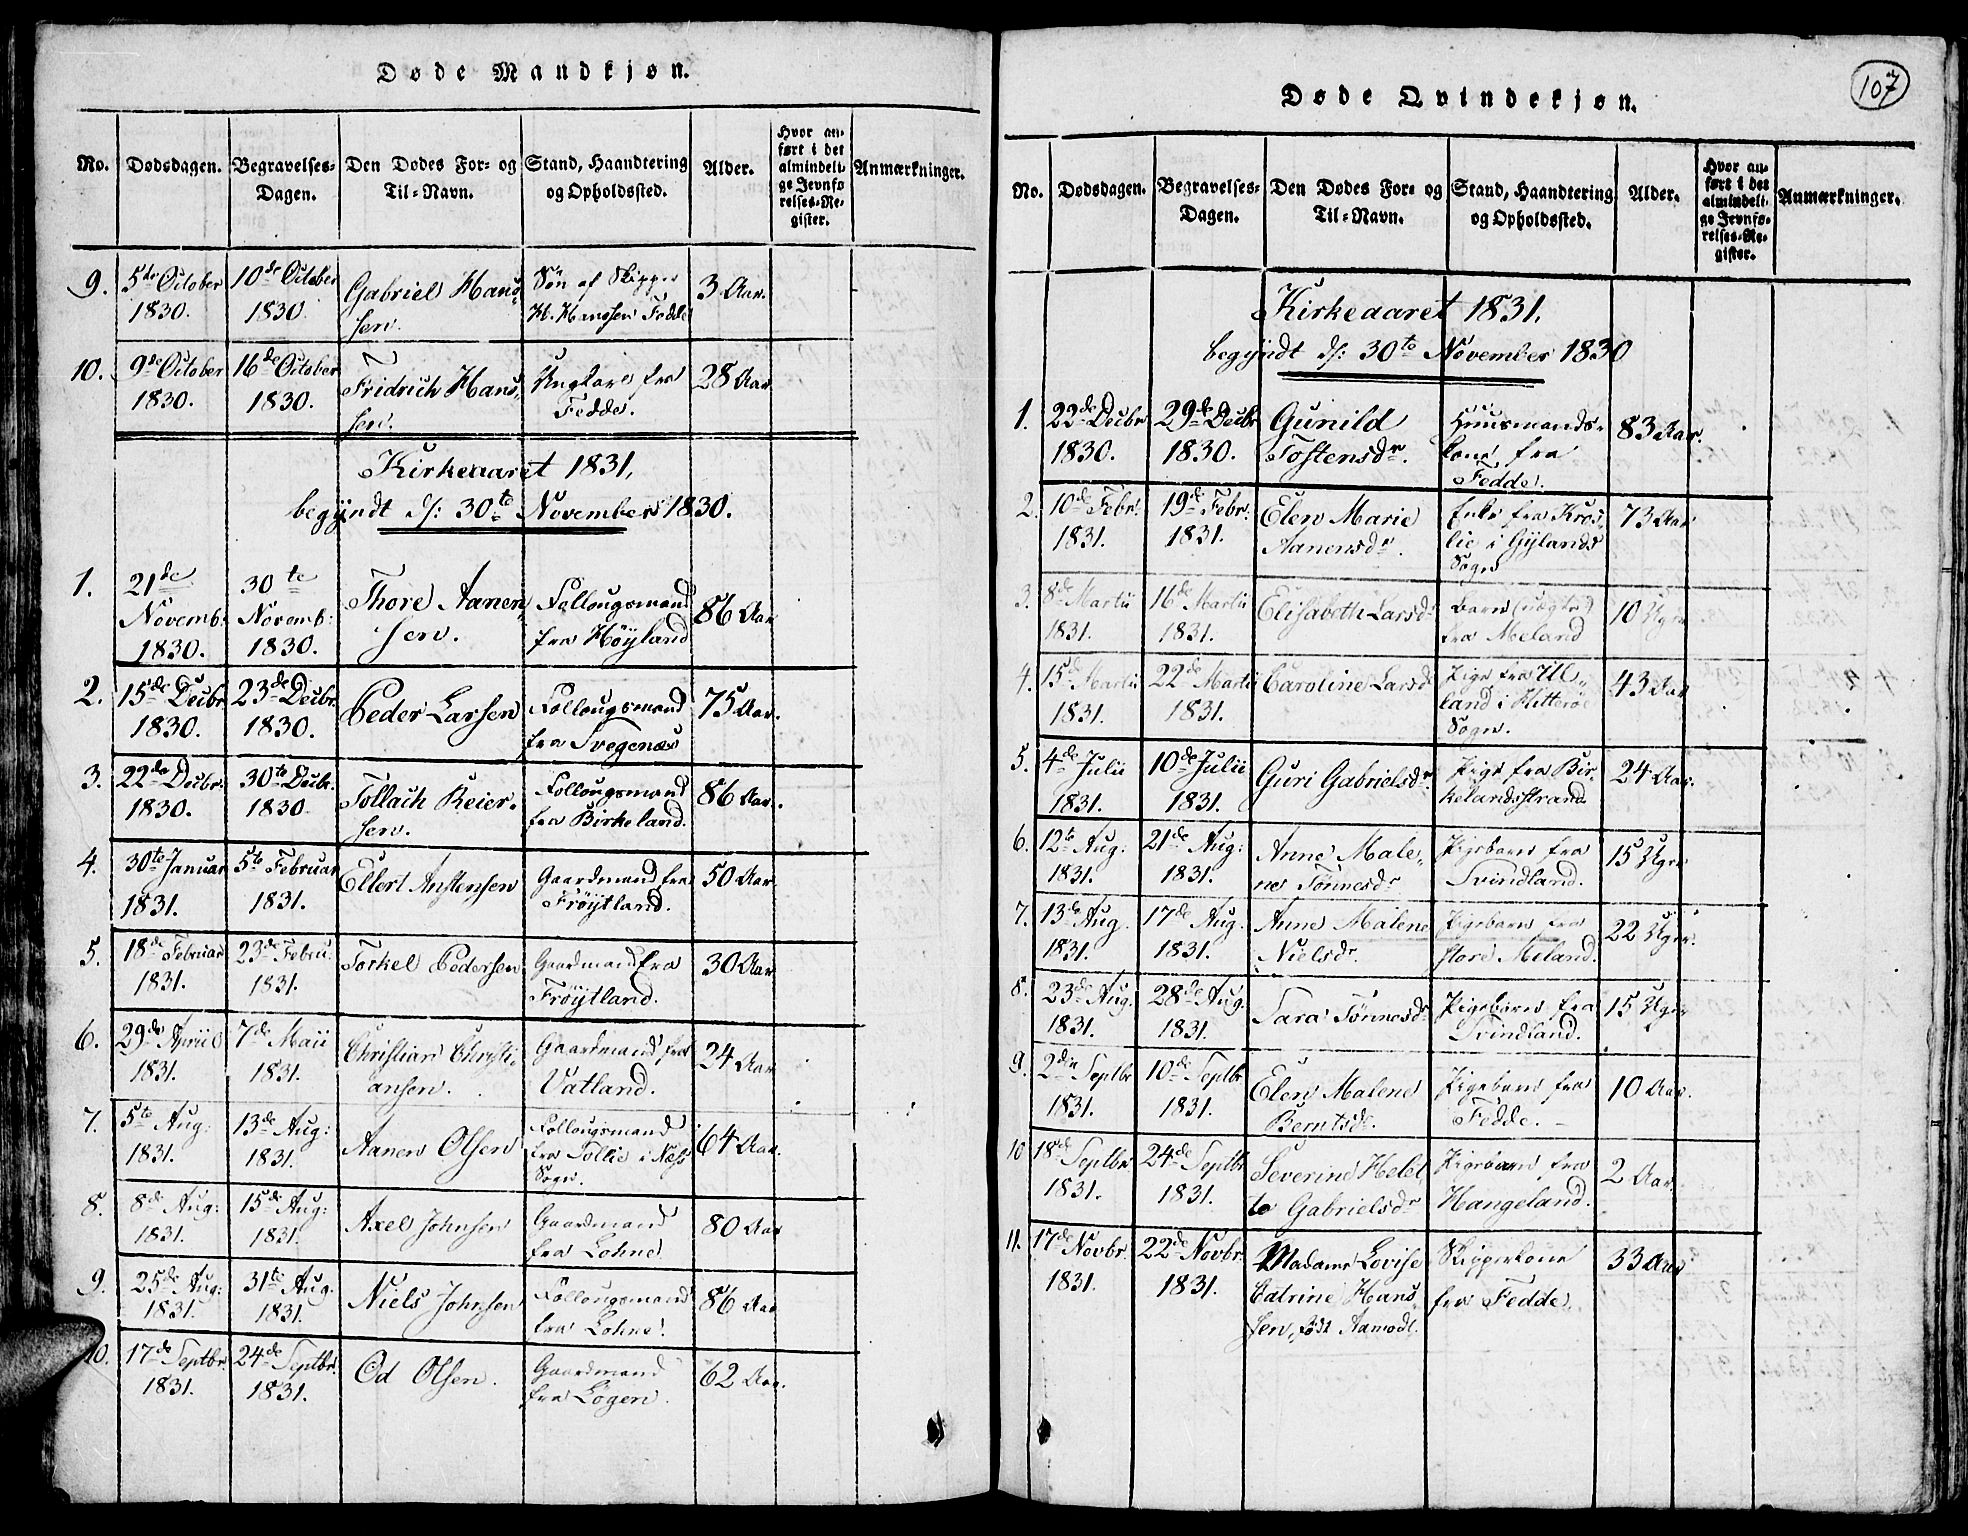 Døde Mandkjøn.
No. Dødsdagen. Begravelses-Dagen. Den Dødes For- og Til-Navn. Stand, Haandtering og Opholdssted. Alder. Hvor anført i det almindelige Jevnførelses-Register. Anmærkninger.
9. 5te October 1830. 10de October 1830. Gabriel Hanssen. Søn af Skipper H. Hanssen Fedde 3 Aar.
10. 9de October 1830. 16de October 1830. Fridrich Hanssen. Ungkarl fra Fedde. 28 Aar
Kirkeaaret 1831,
begyndt d: 30te November 1830.
1. 21de Novemb: 1830. 30te Novemb: 1830. Thore Aanensen. Follougsmand fra Höyland 86 Aar
2. 15de Decbr 1830. 23de Decbr. 1830. Peder Larsen Follougsmand fra Svegenæs 75 Aar.
3. 22de Decbr. 1830. 30te Decbr. 1830 Tollach Reiersen. Follougsmand fra Birkeland. 86 Aar.
4. 30te Januar 1831. 5te Februar 1831. Ellert Anstensen Gaardmand fra Fröytland. 50 Aar
5. 18de Februar 1831. 23de Febru. 1831. Torkel Pedersen Gaardmand fra Fröytland. 30 Aar
6. 29de Apriil 1831. 7de Maii 1831. Christian Christiansen. Gaardmand fra Vatland. 24 Aar
7. 5te Aug: 1831. 13de Aug: 1831. Aanen Olsen Follougsmand fra Tollie i Næss Sogn. 64 Aar.
8. 8de Aug: 1831. 15de Aug: 1831. Axel Johnsen Gaardmand fra Lohne. 80 Aar
9. 25de Aug: 1831. 31te Aug. 1831. Niels Johnsen Follougsmand fra Lohne. 86 Aar
10. 17de Septbr. 1831. 24de Septbr. 1831. Od Olsen. Gaardmand fra Lögen. 62 Aar.
107
Døde Qvindekjøn.
No. Dødsdagen. Begravelses-Dagen. Den Dødes For- og Til-Navn. Stand, Haandtering og Opholdssted. Alder. Hvor anført i det almindelige Jevnførelses-Register. Anmærkninger.
Kirkeaaret 1831.
begyndt d: 30te November 1830
1. 22de Decbr 1830. 29de Decbr 1830. Gunild Tostensdr. Huusmandskone fra Fedde. 83 Aar.
2. 10de Febr. 1831. 19de Febr. 1831. Elen Marie Aanensdr. Enke fra Kroslie i Gylands Sogn 73 Aar
3. 8de Martii 1831. 16de Martii 1831. Elisabeth Larsdr Barn (uægte) fra Meland 10 Uger
4. 15de Martii 1831. 22de Martii 1831. Caroline Larsdr Pige fra Ulland i Hitteröe Sogn. 43 Aar
5. 4de Julii 1831. 10de Julii 1831. Guri Gabrielsdr. Pige fra Birkelandsstrand 24 Aar.
6. 12te Aug: 1831. 21de Aug: 1831. Anne Malene Tönnesdr Pigebarn fra Svindland. 15 Uger
7. 13de Aug. 1831. 17de Aug. 1831. Anne Malene Nielsdr. Pigebarn fra store Meland. 22 Uger.
8. 23de Aug. 1831. 28de Aug. 1831. Sara Tönnesdr Pigebarn fra Svindland. 15 Uger
9. 2den Septbr 1831. 10de Septbr 1831. Elen Malene Berntsdr. Pigebarn fra Fedde. 10 Aar.
10 18de Septbr 1831. 24de Septbr 1831. Severine Helette Gabrielsdr Pigebarn fra Hangeland. 2 Aar.
11. 17de Novbr. 1831. 22de Novbr. 1831. Madame Lovise Catrine Hanssen, födt Aamodt. Skipperkone fra Fedde. 33 Aar